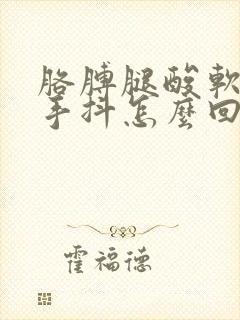 胳膊腿酸軟
手抖怎麼回
霍福德